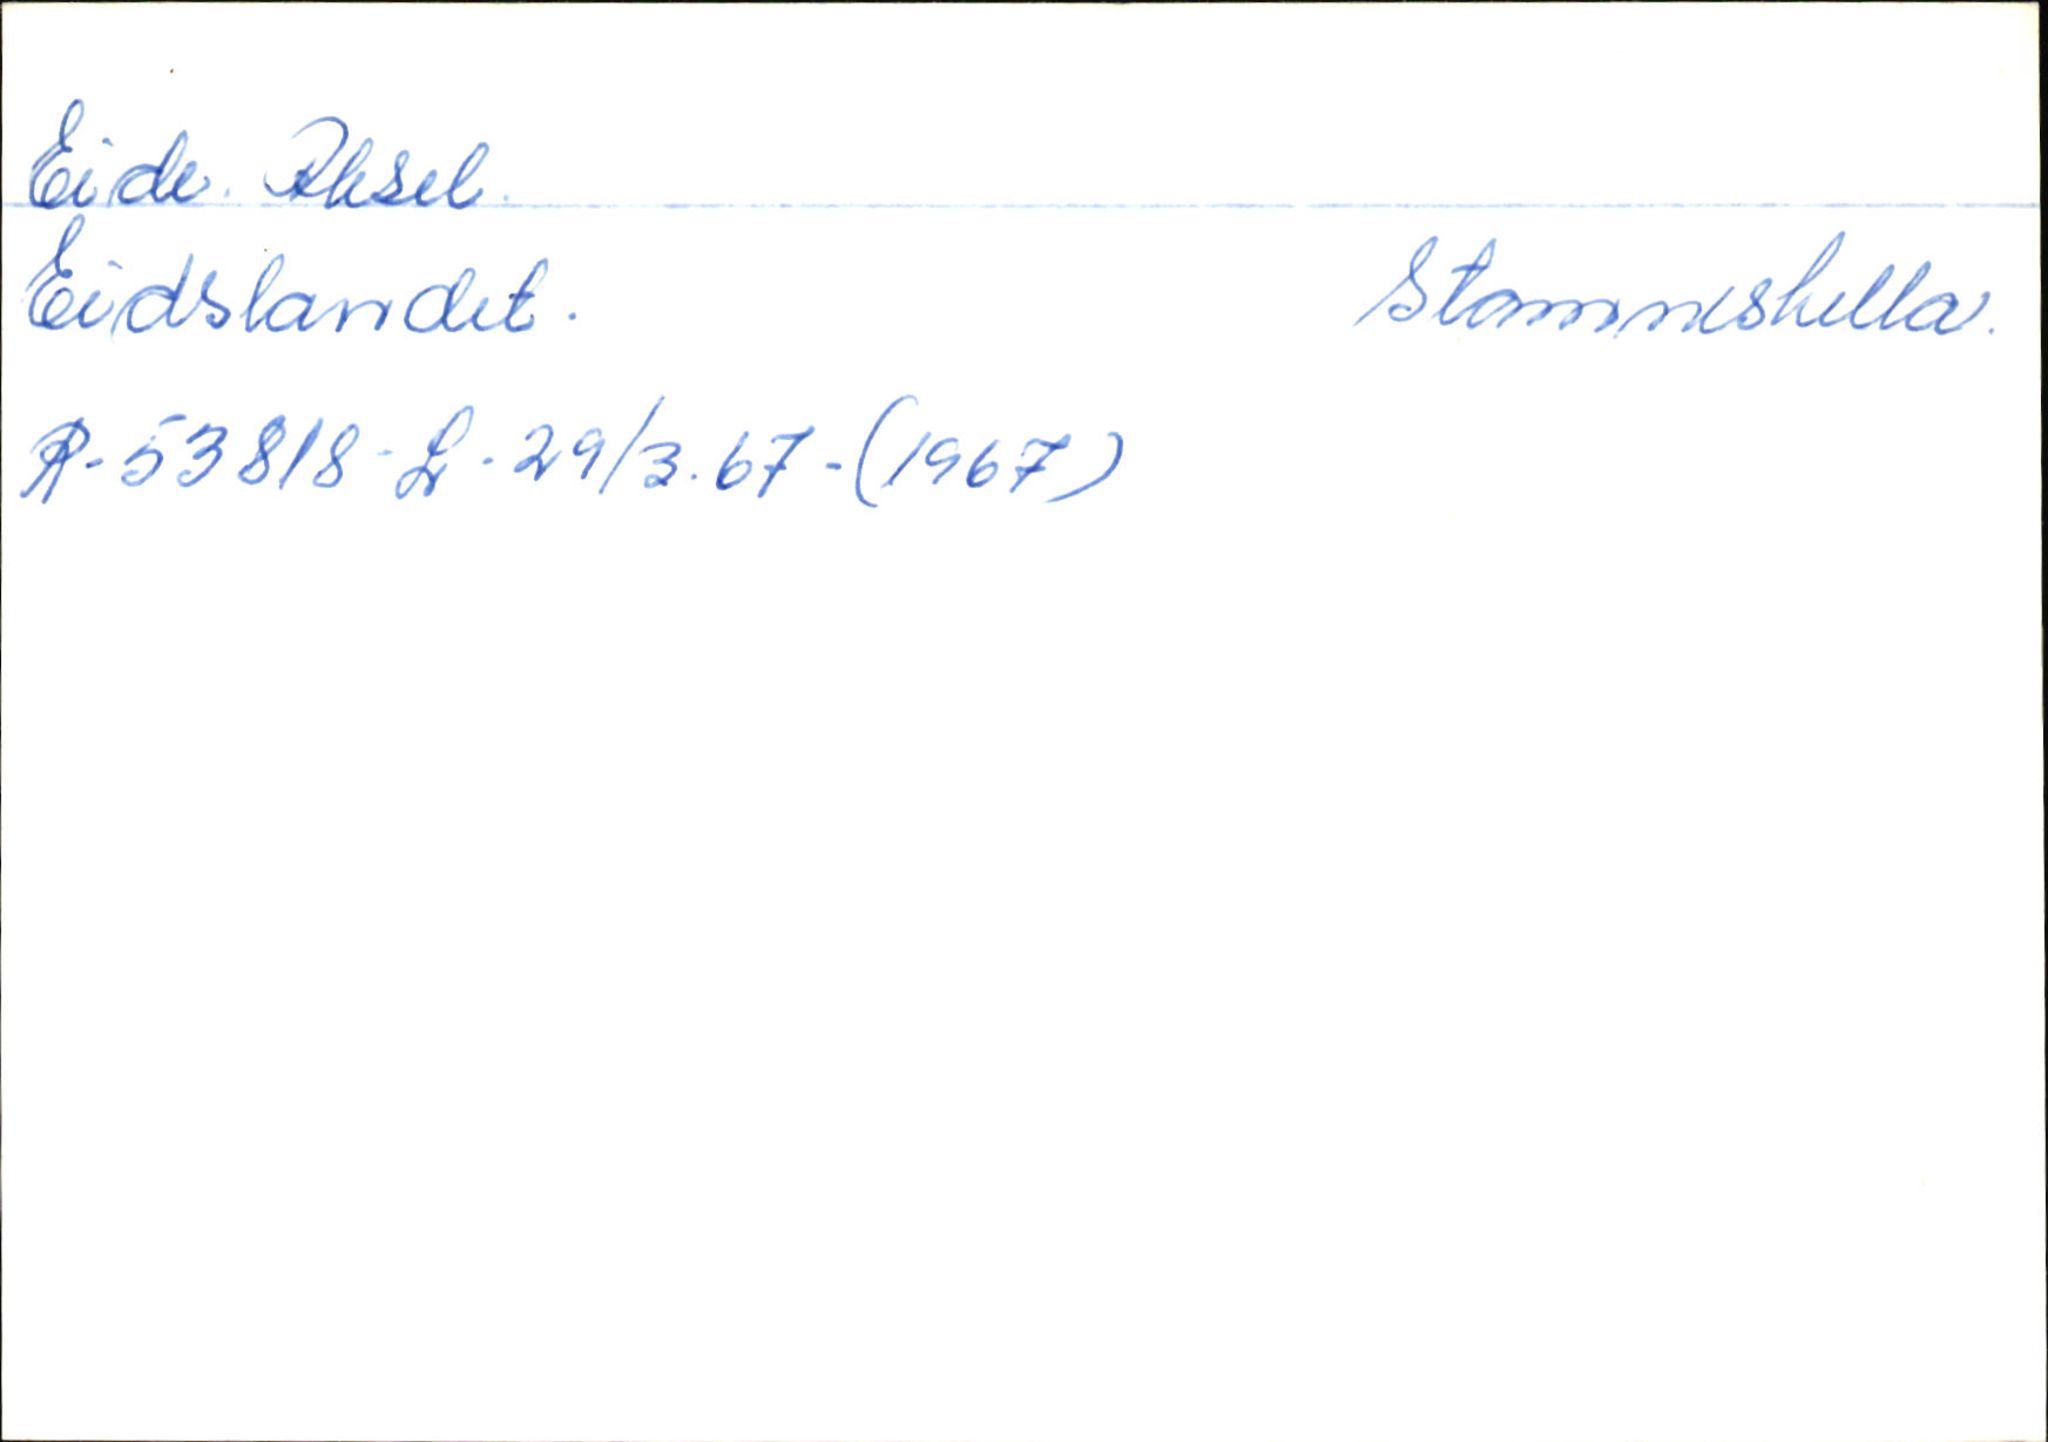 Eide. Aksel.
Eidslandet. Stamneshella.
R-53818-L-29/3.67-(1967)